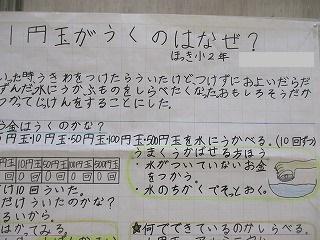 1円玉がうくのはなぜ?
ほっき小2年
いった時、うきわをつけたらういたけど、つけずにおよいだらだ
ずんだ。水にうかぶものをしらべたくなった。おもしろそうだか
つかってじっけんをすることにした。
お金はうくのかな?
5円玉・10円玉・50円玉・100円玉・500円玉を水にうかべる。(10回ずつ)
円玉 10円玉 50円玉 100円玉 500円玉
0回 0回 0回 0回
うまくうかばせる方ほう
・水がついていないお金
をつかう。
・水のちかくでそっとおく。
だけ10回ういた。
だけういたのかな?
るいから。
はかってみる。
★何でできているのかしらべる。